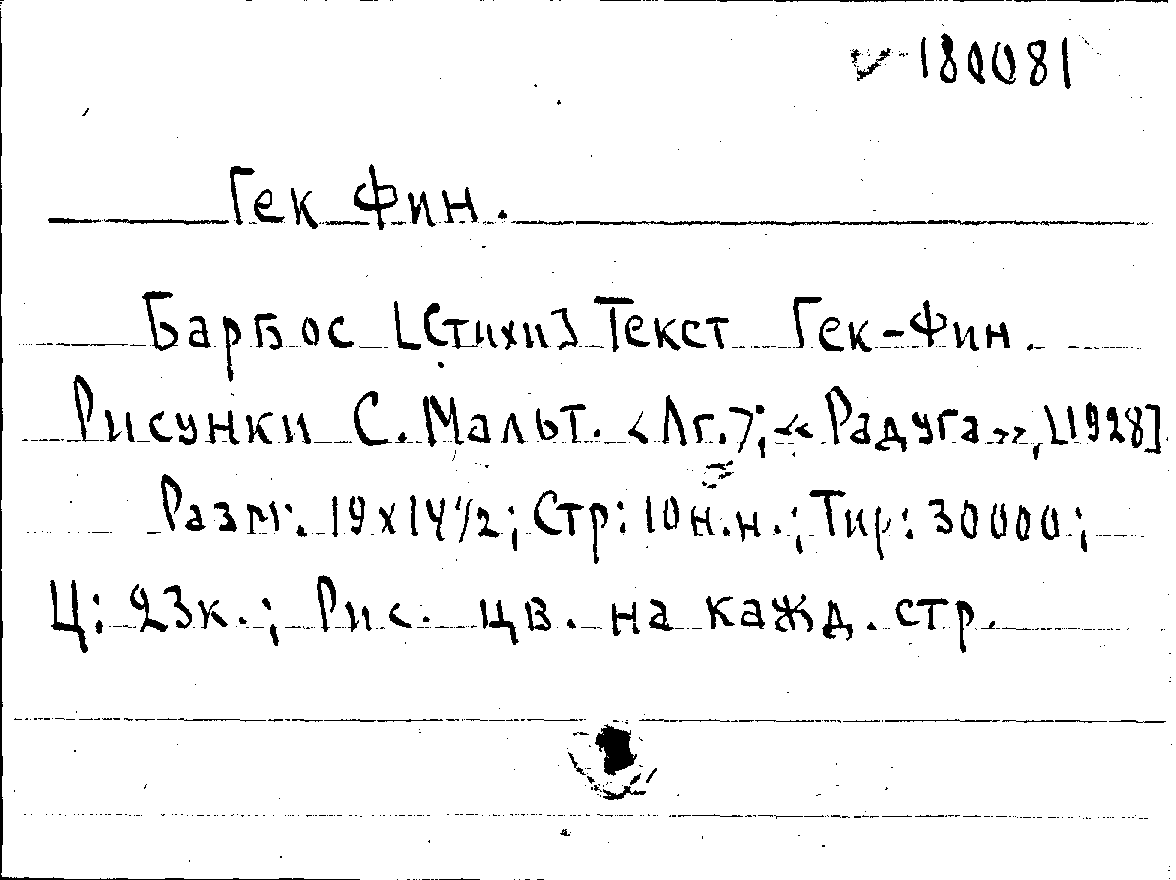 v-180081
Гек Фин.
Барбос [Стихи] Текст Гек-Фин.
Рисунки С. Мальт. <Лг.>; «Радуга», [1928].
Разм: 19х14 1/2; Стр: 10 н.н.; Тир: 30000;
Ц: 23к.; Рис. цв. на кажд. стр.